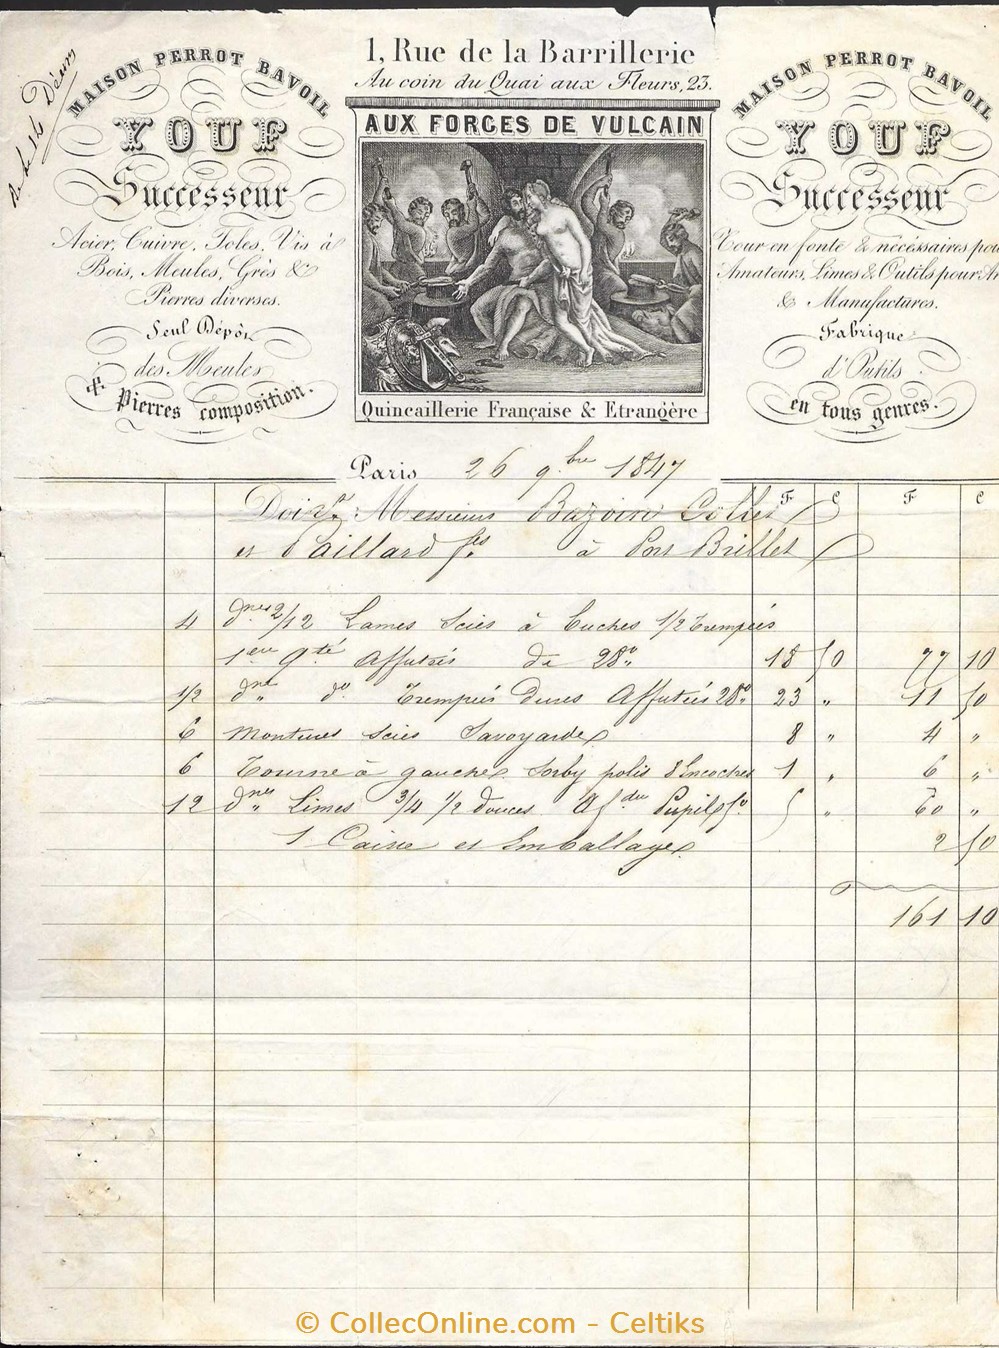 1, Rue de la Barrillerie
Au coin du Quai aux Fleurs, 23.
MAISON PERROT BAVOIL
YOUF
Successeur
Acier, Cuivre, Toles, Vis à
Bois, Meules, Grès &
Pierres diverses.
Seul Dépôt
des Meules
& Pierres composition.
AUX FORCES DE VULCAIN
Quincaillerie Française & Etrangère
MAISON PERROT BAVOIL
YOUF
Successeur
Tour en fonte & nécessaires pou
Amateurs, Limes & Outils pour Ar
& Manufactures.
Fabrique
d'Outils
en tous genres.
Paris 26 9bre 1847
F C F C
Doiv.t Messieurs
et Paillard à Port Brillet
4 dnes 2/12 Lames Scies à Buches 1/2 Trempées
1ere qté Affutées de 28° 18 50 77 10
1/2 dne do Trempées Dures Affutées 28° 23 " 11 50
6 Montures Scies Savoyardes 8 " 4 "
6 Tourne à gauche Sorby polis 8 Encoches 1 " 6 "
12 dnes Limes 3/4 1/2 douces 5 " 60 "
1 Caisse et Emballage 2 50
161 10
© CollecOnline.com - Celtiks